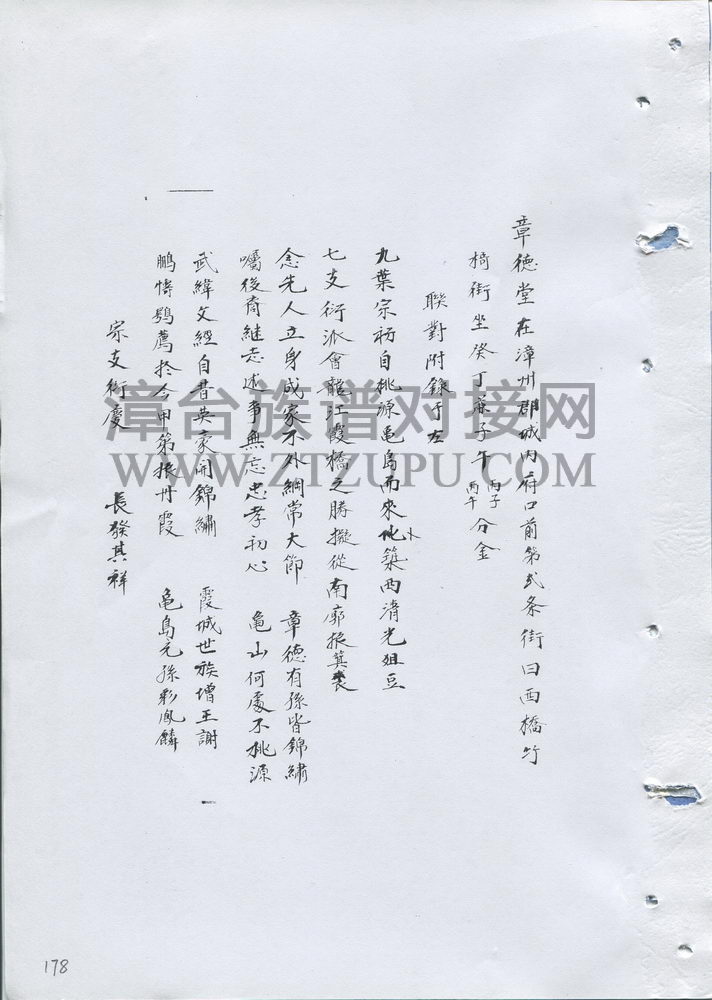 章德堂在漳州郡城内府口前第弍条街曰西橋竹
椅街坐癸丁兼子午丙子丙午分金
聯對附錄于左
九葉宗祊自桃源亀島而來卜築西清光俎豆
七支衍派會龍江霞橋之勝擬從南廓振箕裘
念先人立身成家不外綱常大節 章德有孫皆錦繡
囑後裔継志述事無忘忠孝初心 亀山何處不桃源
武緯文經自昔英豪開錦繡 霞城世族增王謝
鵬摶鶚薦於今甲第振丹霞 亀島元孫彩鳳麟
宗支衍慶 長發其祥
漳台族谱对接网
WWW.ZTZUPU.COM
178